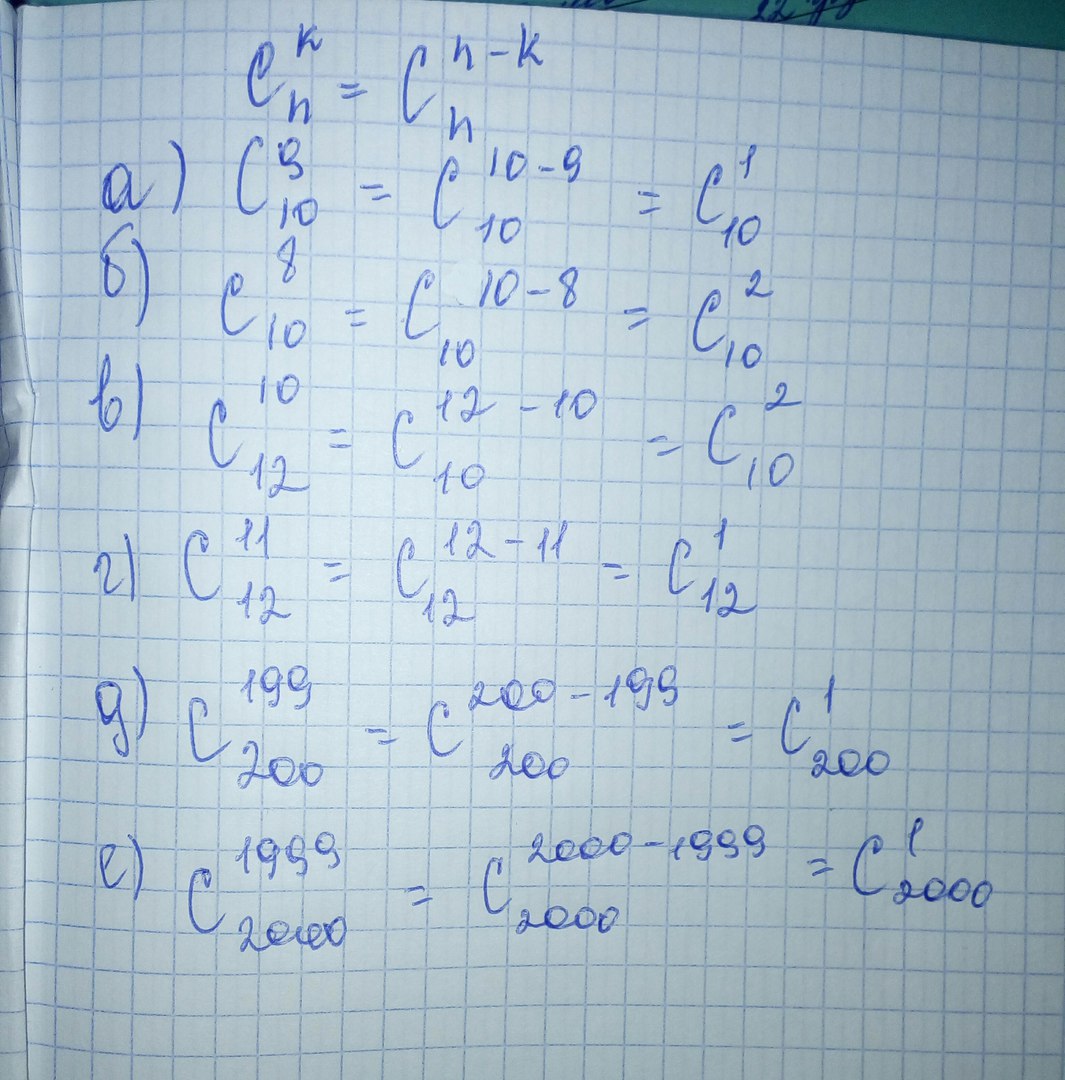 C_n^k = C_n^{n-k}
а) C_{10}^9 = C_{10}^{10-9} = C_{10}^1
б) C_{10}^8 = C_{10}^{10-8} = C_{10}^2
в) C_{12}^{10} = C_{10}^{12-10} = C_{10}^2
г) C_{12}^{11} = C_{12}^{12-11} = C_{12}^1
д) C_{200}^{199} = C_{200}^{200-199} = C_{200}^1
е) C_{2000}^{1999} = C_{2000}^{2000-1999} = C_{2000}^1